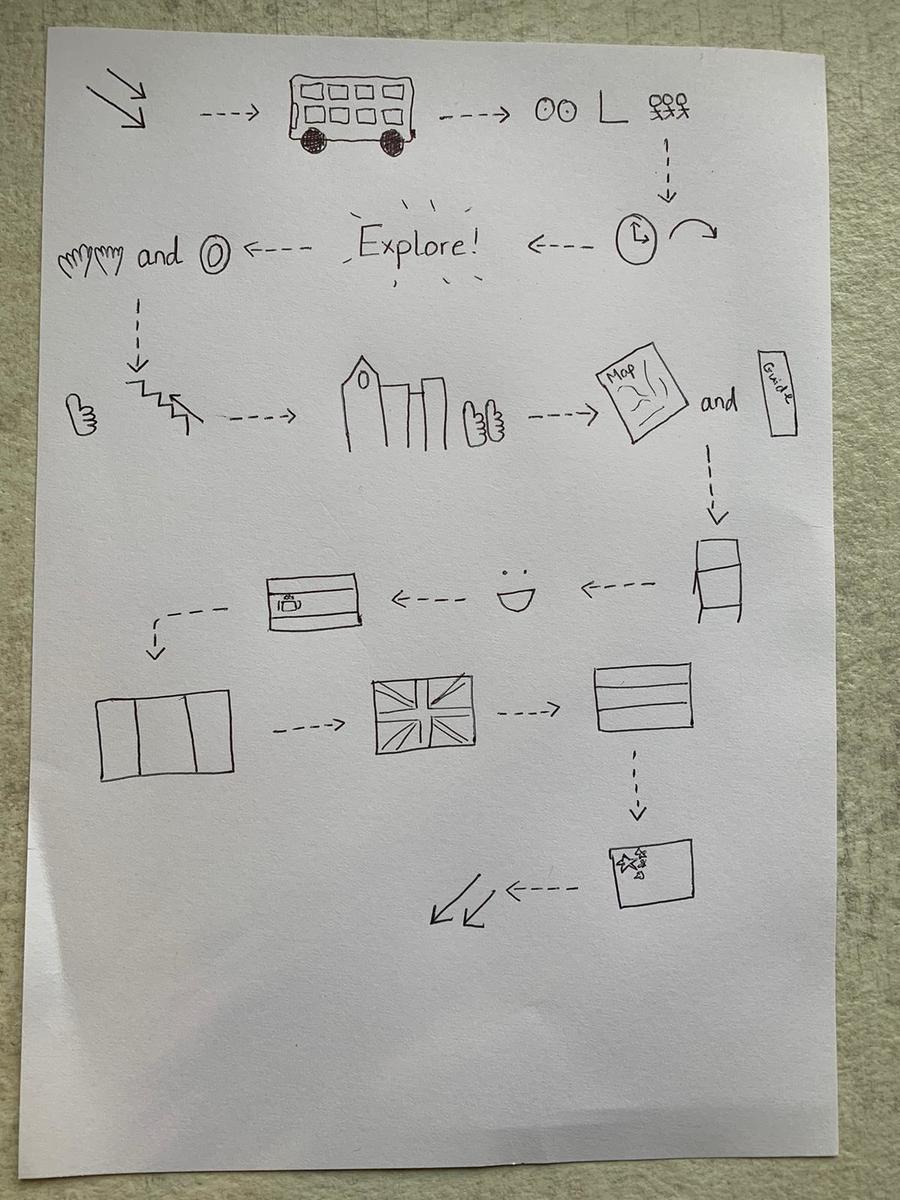 Explore!
and
Map
and
Guide